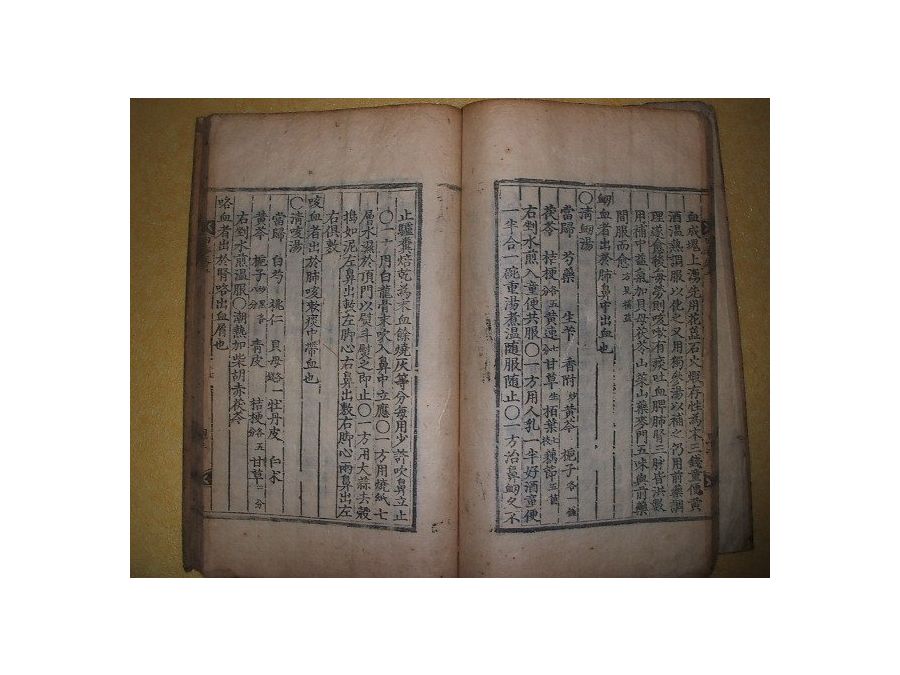 血成塊上湧先用花蕊石火煆存性為末三錢童便黃
酒溫熱調服以化之又用獨參湯以補之仍用前藥調
理漢愈後每勞則咳嗽有痰吐血脾肺腎三脉皆洪數
用補中益氣加貝母茯苓山茱山藥麥門五味血前藥
間服而愈
衂血者出於肺鼻中出血也
〇清衂湯
當歸 芍藥 生苄 香附炒 黃芩 梔子各一錢
茯苓 桔梗各五分 黃連七分 甘草 柏葉七枚 藕節五箇
右剉水煎入童便共服〇一方用人乳一半好酒童便
一半合一碗重湯煮溫隨服隨止〇一方治鼻衂久不
止驢糞焙乾為末血餘燒灰等分每用少許吹鼻立止
〇一方用白龍骨末吹入鼻中立應〇一方用燒紙七
層水濕於頂門以熨斗熨之即止〇一方用大蒜去殼
搗如泥左鼻出敷左脚心右鼻出敷右脚心兩鼻出左
右俱敷
咳血者出於肺咳嗽痰中帶血也
〇清咳湯
當歸 白芍 桃仁 貝母各一 牡丹皮 白朮
黃芩 梔子炒黑各八分 青皮 桔梗各五分 甘草三分
右剉水煎溫服〇潮熱加柴胡赤茯苓
咯血者出於腎咯出血屑也